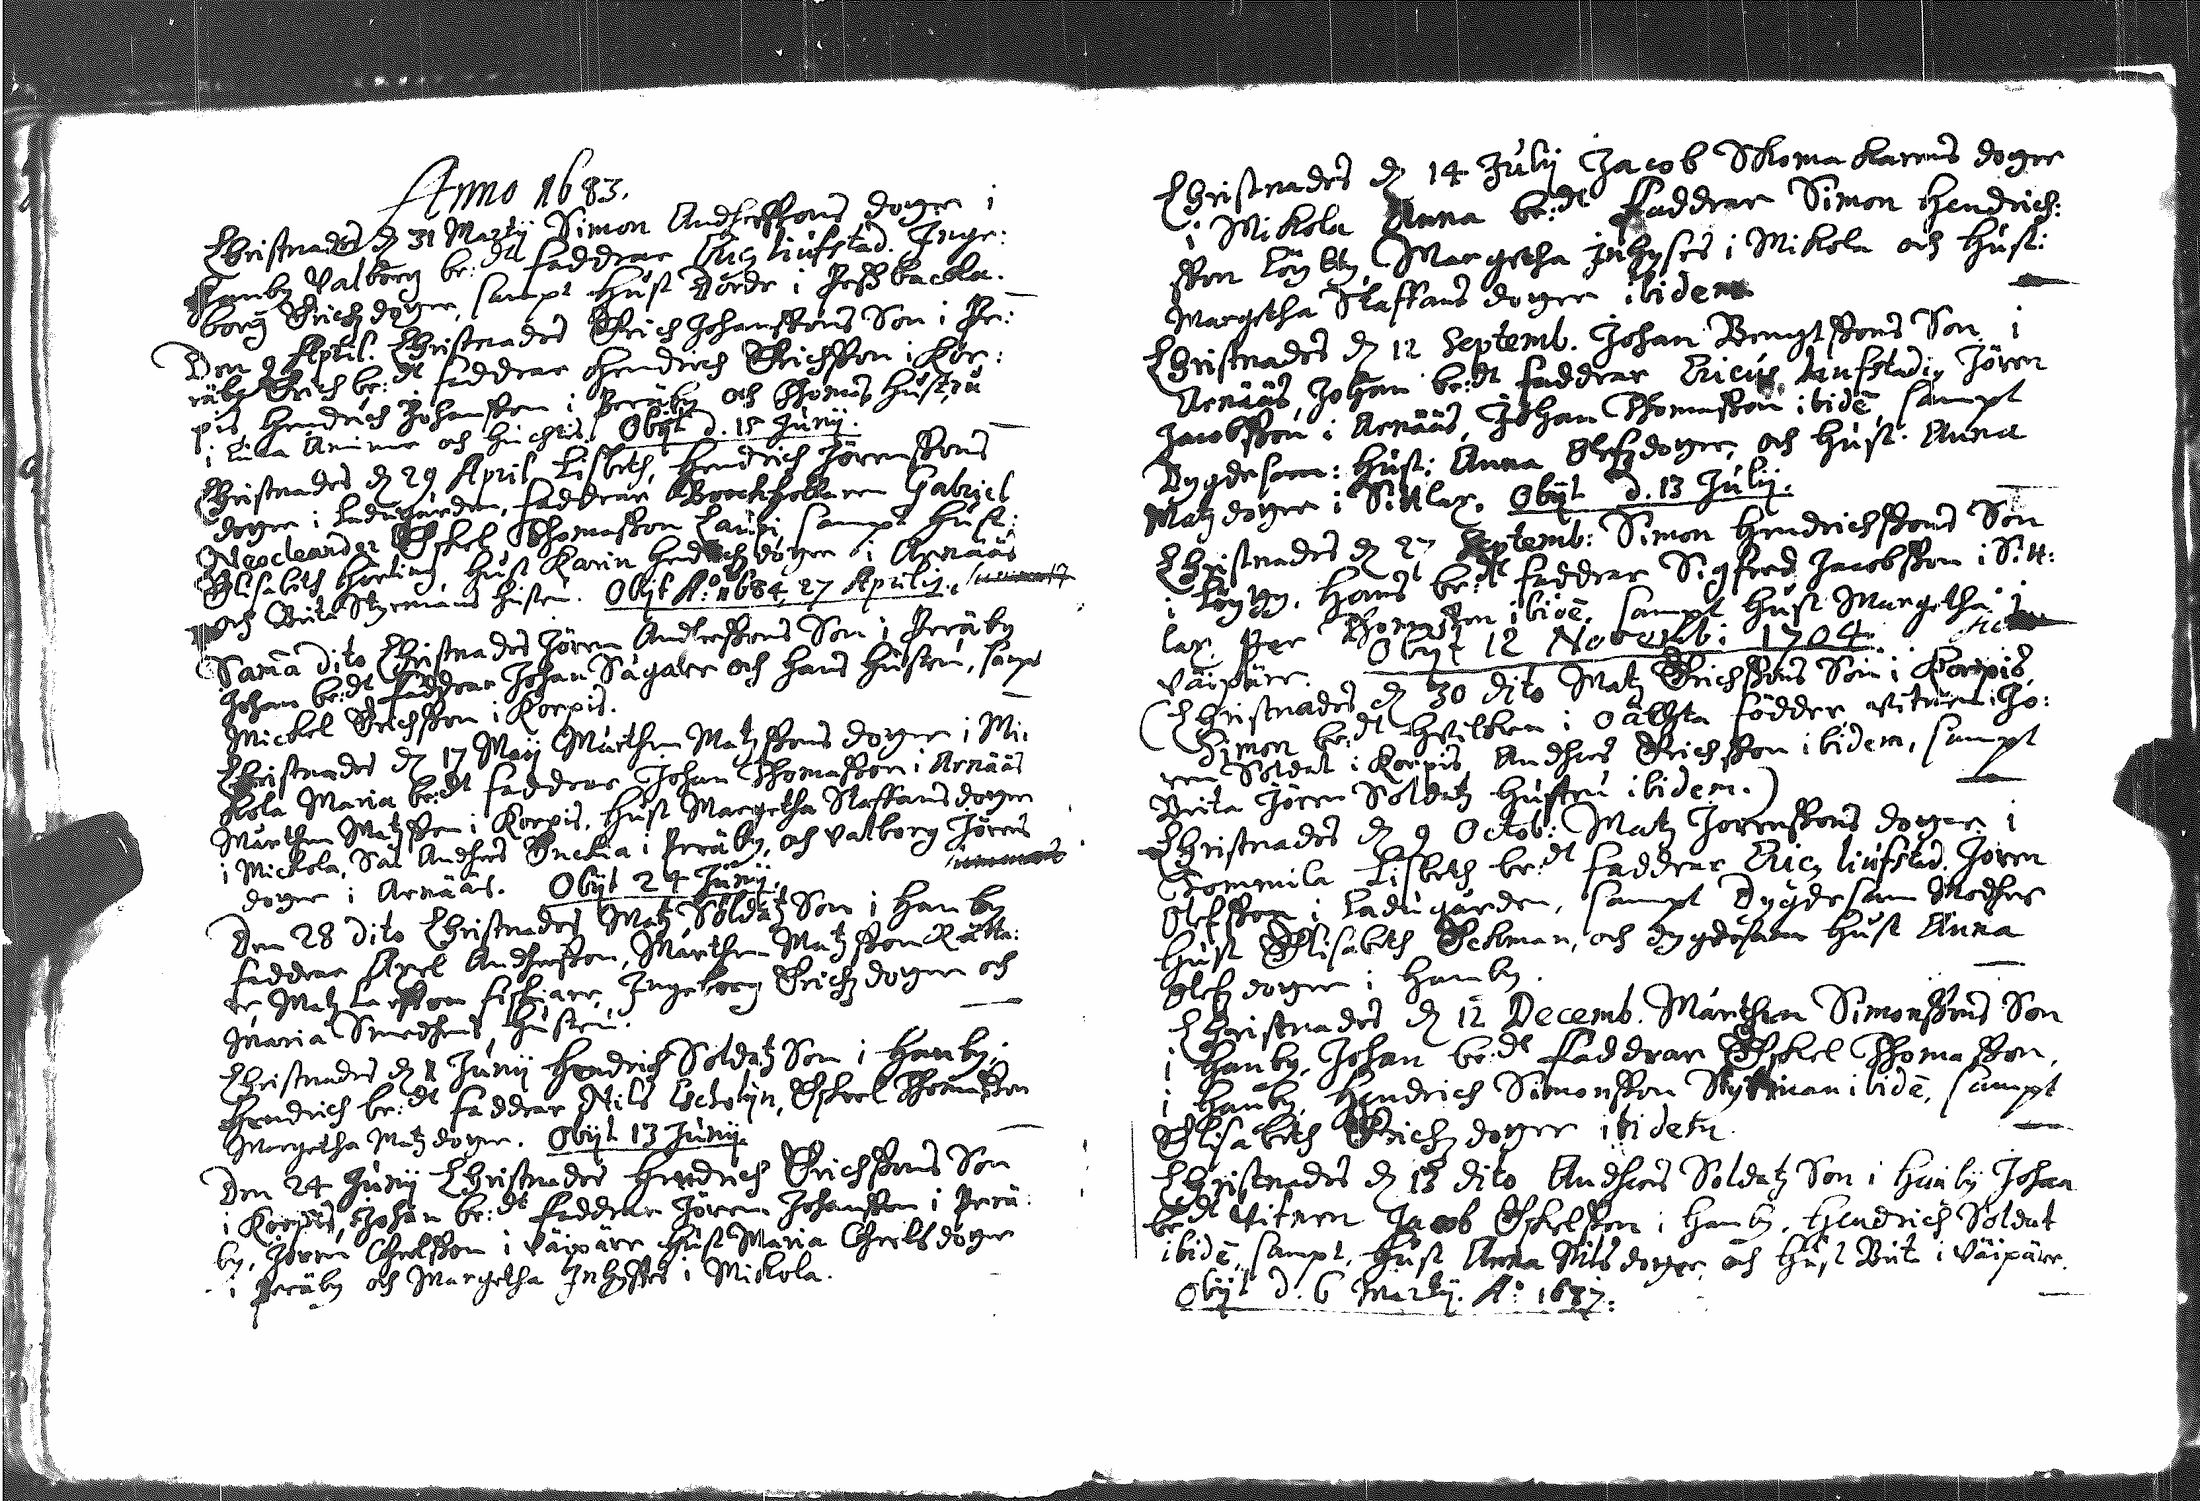 Anno 1683.
Christnades d 31 Martij Simon Andersszons doger i
Hanby Valborg be:dt faddrar Eric Liufstad. Inge:
borg Erichz doger, sampt Hust Börde i Pessbacka.
Den 9 April. Christnades Erich Johanszons Son i Pe:
räby Erich be:dt faddrar Hendrich Erichszon i Kor:
pis Hendrich Johanszon i Peräby och Thomas Hustru
i Lilla och Obijt d. 18 Junij.
Christnades d 29 April Lisbeth, Hendrich Jörenszons
doger i Ladugården, faddrar Boockhollaren Gabriel
Neocleander Eskel Thomasszon Lauri, sampt Hust:
Elisabeth Hörling, Hust Karin Hendrichz doger i Arnääs
och Brita Styrmans Hustru. Obijt A:o 1684, 27 Aprilis.
Sama dito Christnades Jören Anderszons Son i Peräby
Johan be:dt faddrar Johan Sågare och Hans Hustru, sampt
Mickel Erichszon i Korpis.
Christnades d 17 Maij Mårthen Matzszons doger i Mi:
kola Maria be:dt faddrar Johan Thomaszon i Arnääs
Mårthen Matzszon i Korpis, Hust Margetha Staffans doger
i Mickola, Sal Anders Enckia i Peräby, och Valborg Jörens
doger i Arnääs. Obijt 24 Junij.
Den 28 dito Christnades Matz Soldatz Son i Hanby
faddrar Axel Anderszon, Mårthen Matzszon Råtta:
re, Matz Larszon fiskiare, Ingeborg Erichz doger och
Maria Smedhens Hustru.
Christnades d 1 Junij Hendrich Soldatz Son i Hanby,
Hendrich be:dt faddrar Nils Escholijn, Eskel Thomaszon
Margetha Matz doger. Obijt 13 Junij.
Den 24 Junij Christnades Hendrich Erichszons Son
i Korpis, Johan be:dt faddrar Jören Johanszon i Perä:
by, Jören Chrelszon i Väipäre Hust Maria Chrels doger
i Peräby och Margetha Inhysses i Mickola.
Christnades d 14 Julij Jacob Skomakarens doger
i Mikola Anna be:dt faddrar Simon Hendrich:
szon Löyby, Margetha Inhyses i Mikola och Hust:
Margetha Staffans doger ibidem
Christnades d 12 Septemb. Johan Bengtszons Son i
Arnääs, Johan be:dt faddrar Ericus Liufstadi, Jören
Jacobszon i Arnääs, Johan Thomaszon ibidē, sampt
Dygdesam: Hust: Anna Olefz doger, och Hust. Anna
Matz doger i Sittlax. Obijt d. 13 Julij.
Christnades d 27 Septemb: Simon Hendrichszons Son
i Löyby, Hans be:dt faddrar Sigfred Jacobszon i Sitt:
lax, Per Thomaszon ibidē, sampt Hust Margetha i
Väipäre. Obijt 12 Novemb: 1704.
(Christnades d 30 dito Matz Erichszons Son i Korpis,
Simon be:dt hvilken i oächta födder, vitnen Jö:
ren Soldat i Korpis Anders Erichszon ibidem, sampt
Brita Jören Soldatz Hustru ibidem.)
Christnades d 9 Octob: Matz Jörenszons doger i
Tommila Lisbeth be:dt faddrar Eric Liufstad. Jören
Olefszon i Ladugården, sampt Dygdesam Modher
Hust Elisabeth Eekman, och dygdesam Hust Anna
Olefz doger i Hanby.
Christnades d 12 Decemb. Mårthen Simonszons Son
i Hanby, Johan be:dt faddrar Eskel Thomaszon,
i Hanby, Hendrich Simonszon Styrman ibidē, sampt
Elisabeth Erichz doger ibidem
Christnades d 13 dito Anders Soldatz Son i Hanby Johan
be:dt vitnen Jacob Eskelszon i Hanby, Hendrich Soldat
ibidē, sampt. Hust Anna Nils doger och Hust Brit i Väipäre.
Obijt d. 6 Martij. A:o 1687.